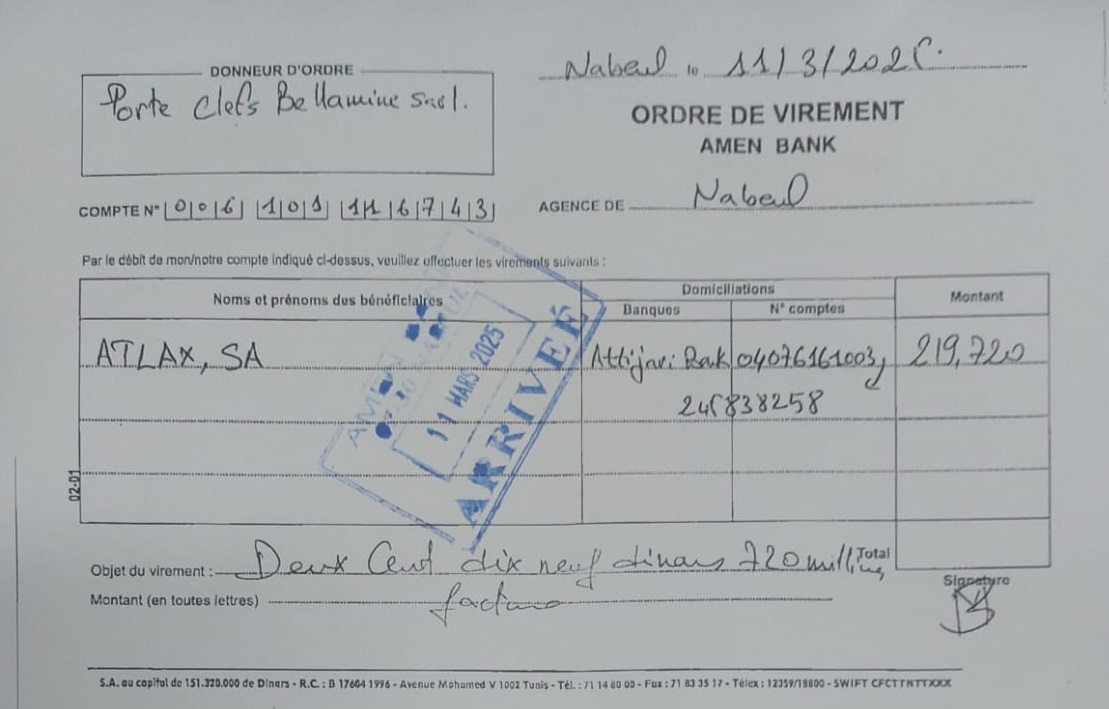 Nabeul le 11/3/2025.
DONNEUR D'ORDRE
Porte Clefs Bellamine sarl.
ORDRE DE VIREMENT
AMEN BANK
COMPTE N° 0 0 6 1 0 1 11 6 7 4 3
AGENCE DE Nabeul
Par le débit de mon/notre compte indiqué ci-dessus, veuillez effectuer les virements suivants :
Noms et prénoms des bénéficiaires Domiciliations Montant
Banques N° comptes
ATLAX, SA Attijari Bak 04076161003 219,720
245838258
11 MARS 2025
ARRIVÉE
02-01
Objet du virement : Deux Cent dix neuf dinars 720 millimes Total
Montant (en toutes lettres) facture
Signature
S.A. au capital de 151.320.000 de Dinars - R.C. : B 17604 1996 - Avenue Mohamed V 1002 Tunis - Tél. : 71 14 80 00 - Fax : 71 83 35 17 - Télex : 12359/18800 - SWIFT CFCTTNTTXXX